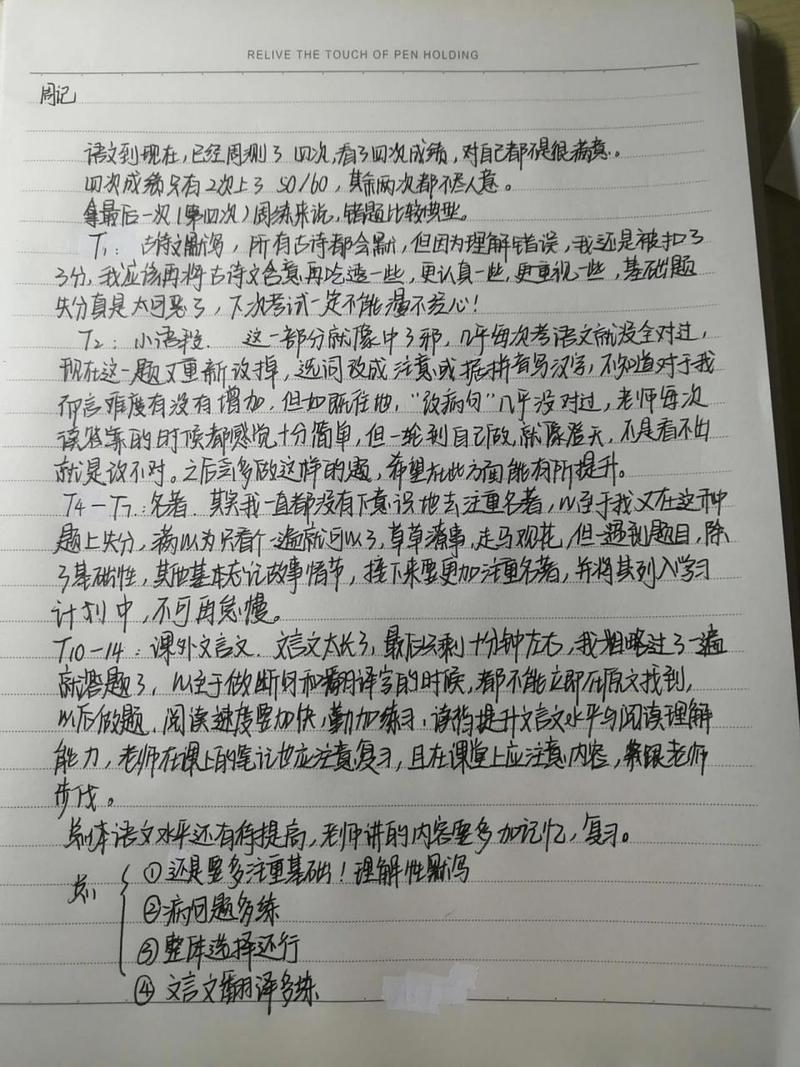 RELIVE THE TOUCH OF PEN HOLDING
周记
语文到现在，已经周测了四次，看了四次成绩，对自己都不是很满意。
四次成绩只有2次上了50/60，其余两次都不尽人意。
拿最后一次（第四次）周练来说，错题比较典型。
T1：古诗文默写，所有古诗都会默，但因为理解错误，我还是被扣了
3分，我应该再将古诗文含意再吃透一些，更认真一些，更重视一些，基础题
失分真是太可恶了，下次考试一定不能漫不经心！
T2：小语段． 这一部分就像中了邪，几乎每次考语文就没全对过，
现在这一题又重新改掉，选词改成注意或据拼音写汉字，不知道对于我
而言难度有没有增加，但如既往地，“改病句”几乎没对过，老师每次
读答案的时候都感觉十分简单，但一轮到自己做，就像登天，不是看不出
就是改不对。之后会多做这样的题，希望在此方面能有所提升。
T4－T7：名著．其实我一直都没有下意识地去注重名著，以至于我又在这种
题上失分，满以为只看个一遍就可以了，草草满事，走马观花，但一遇到题目，除
了基础性，其他基本忘记故事情节，接下来要更加注重名著，并将其列入学习
计划中，不可再怠慢。
T10－14：课外文言文．文言文太长了，最后只剩十分钟左右，我粗略过了一遍
就答题了，以至于做断句和翻译字的时候，都不能立即在原文找到，
以后做题，阅读速度要加快，勤加练习，读档提升文言文水平与阅读理解
能力，老师在课上的笔记也应注意复习，且在课堂上应注意内容，紧跟老师
步伐。
总体语文水平还有待提高，老师讲的内容要多加记忆，复习。
总：
①还是要多注重基础！理解性默写
②病句题多练
③整体选择还行
④文言文翻译多练